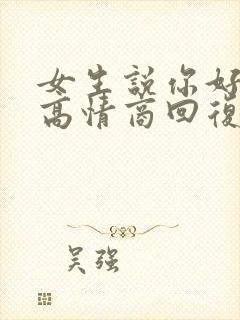 女生說你好
高情商回復
吴强